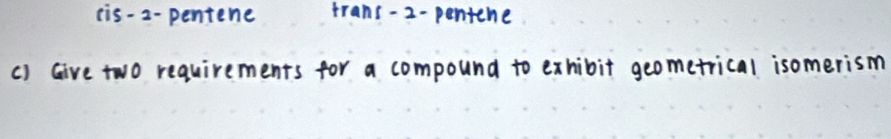 cis-2-pentene trans-2-pentene
c) Give two requirements for a compound to exhibit geometrical isomerism